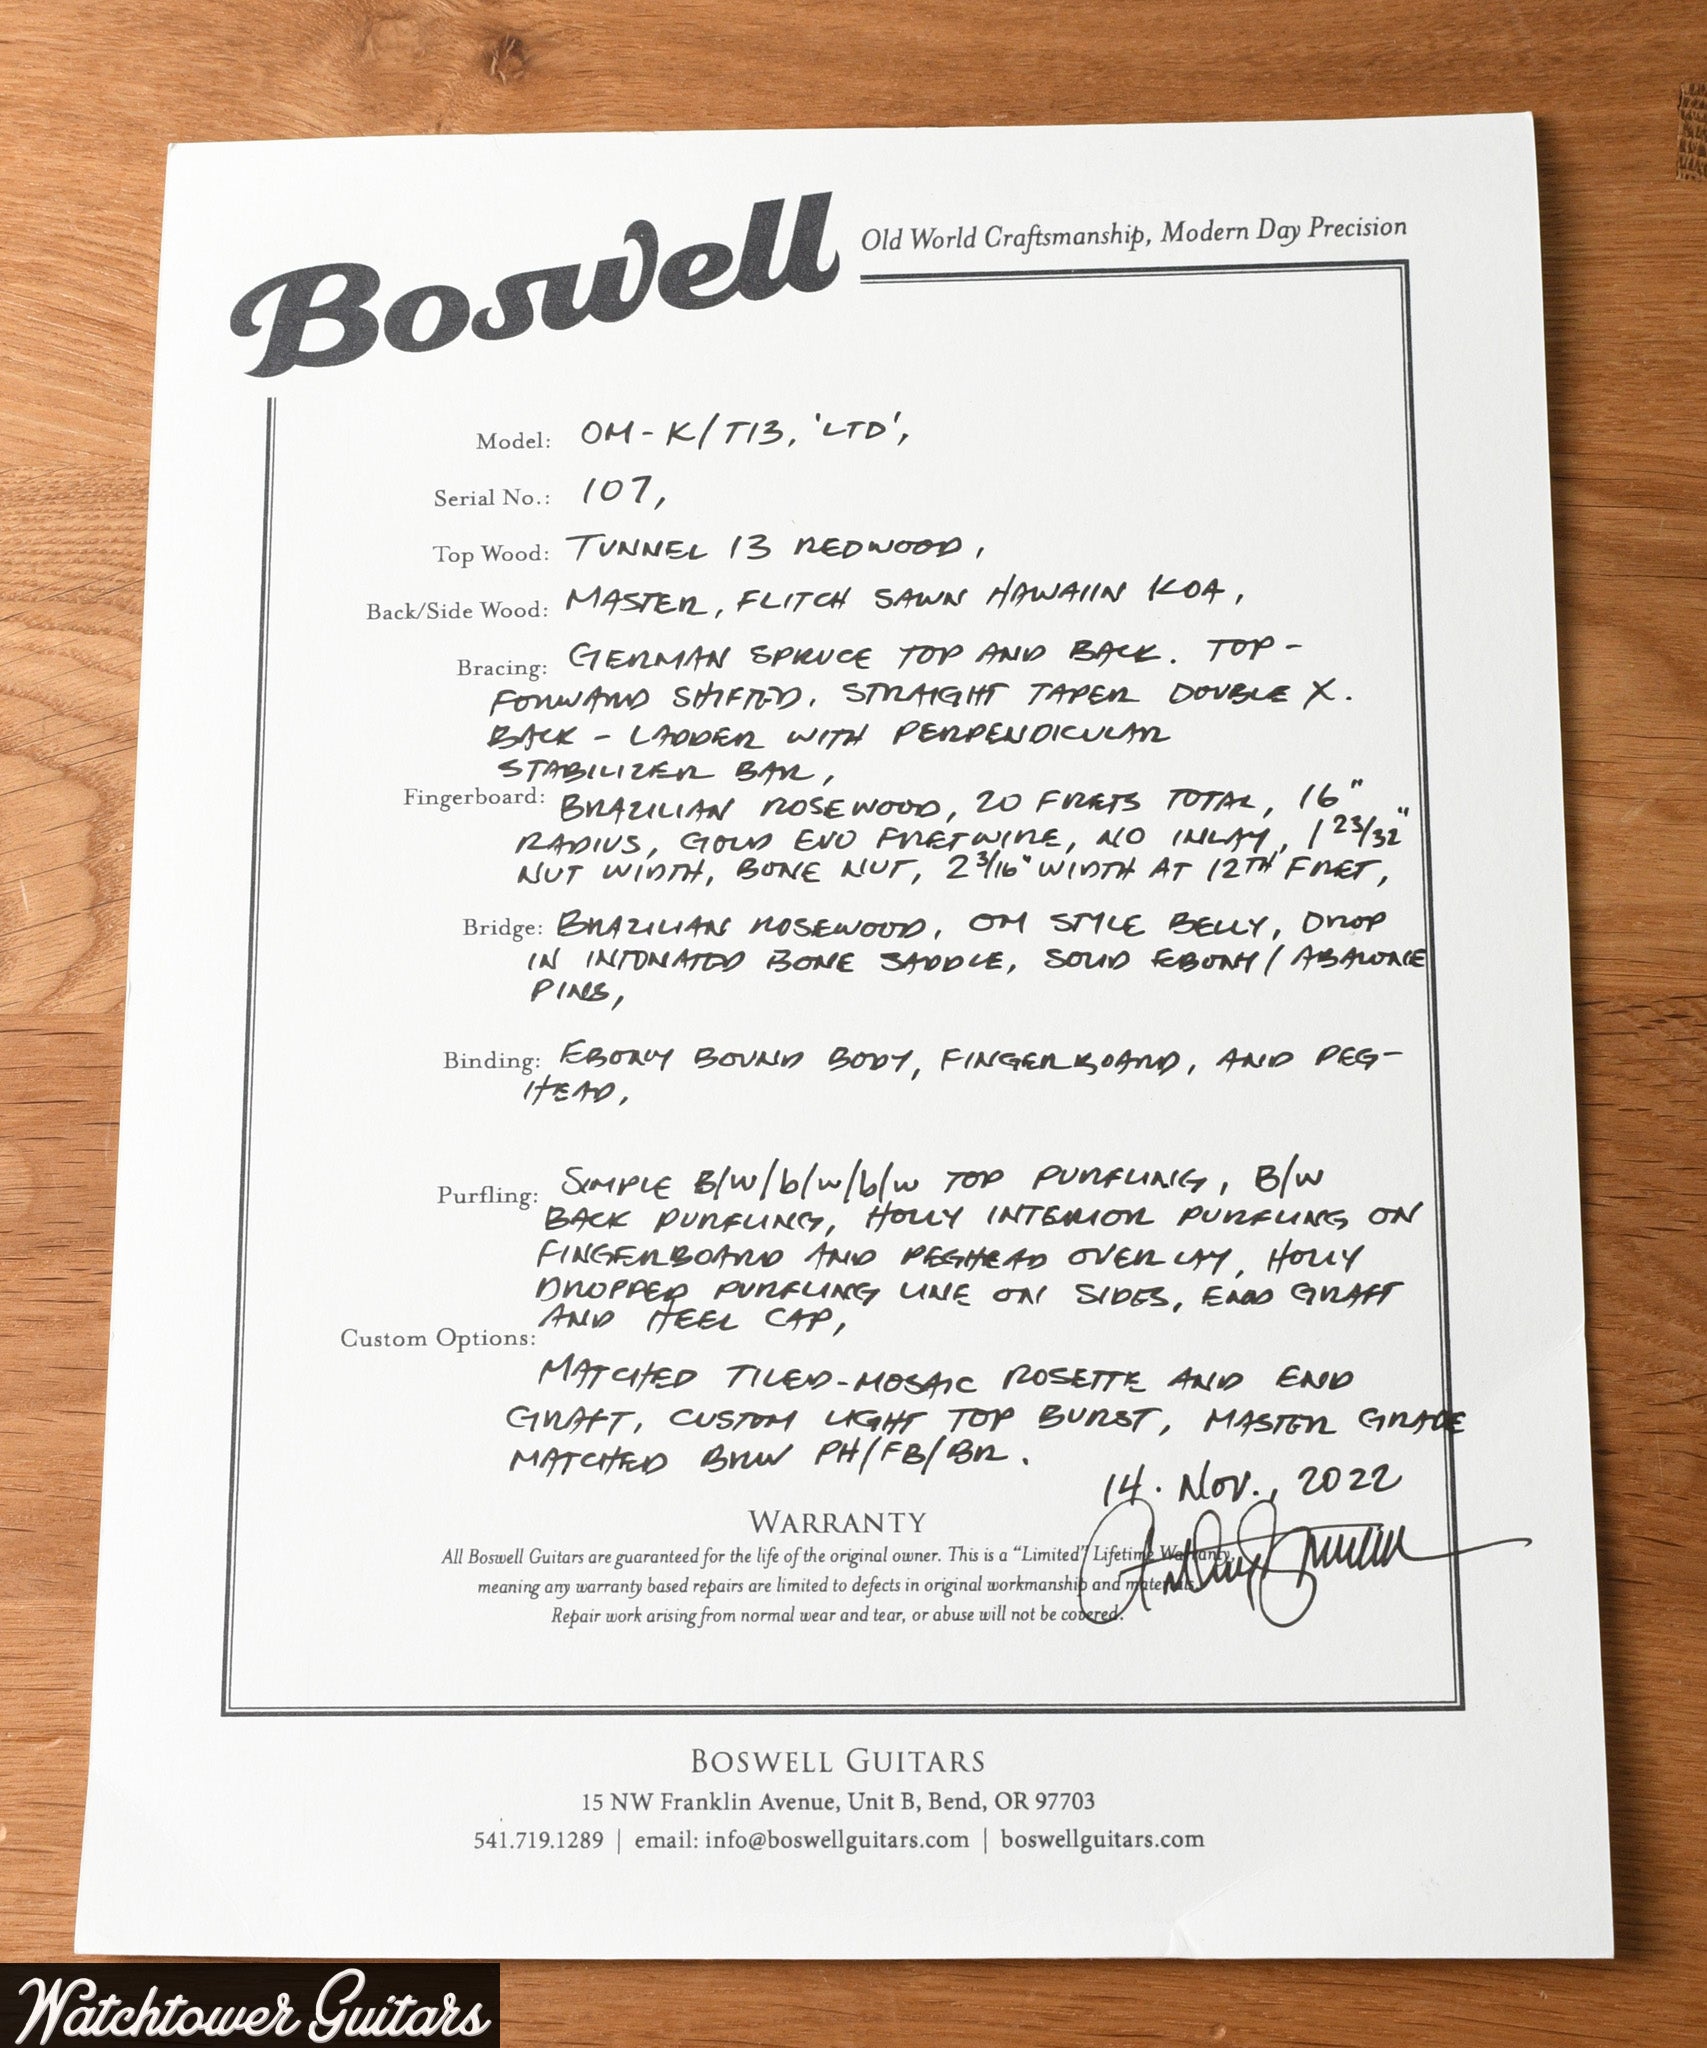 Boswell
Old World Craftsmanship, Modern Day Precision
Model: OM-K/T13, 'LTD',
Serial No.: 107,
Top Wood: TUNNEL 13 REDWOOD,
Back/Side Wood: MASTER, FLITCH SAWN HAWAIIN KOA,
Bracing: GERMAN SPRUCE TOP AND BACK. TOP-
FORWARD SHIFTED, STRAIGHT TAPER DOUBLE X.
BACK - LADDER WITH PERPENDICULAR
STABILIZER BAR,
Fingerboard: BRAZILIAN ROSEWOOD, 20 FRETS TOTAL, 16"
RADIUS, GOLD EVO FRETWIRE, NO INLAY, 1 23/32"
NUT WIDTH, BONE NUT, 2 3/16" WIDTH AT 12TH FRET,
Bridge: BRAZILIAN ROSEWOOD, OM STYLE BELLY, DROP
IN INTONATED BONE SADDLE, SOLID EBONY/ABALONE
PINS,
Binding: EBONY BOUND BODY, FINGERBOARD, AND PEG-
HEAD,
Purfling: SIMPLE B/W/b/w/b/w TOP PURFLING, B/W
BACK PURFLING, HOLLY INTERIOR PURFLING ON
FINGERBOARD AND PEGHEAD OVERLAY, HOLLY
DROPPED PURFLING LINE ON SIDES, END GRAFT
AND HEEL CAP,
Custom Options:
MATCHED TILED-MOSAIC ROSETTE AND END
GRAFT, CUSTOM LIGHT TOP BURST, MASTER GRADE
MATCHED BRW PH/FB/BR.
14. Nov., 2022
WARRANTY
All Boswell Guitars are guaranteed for the life of the original owner. This is a "Limited" Lifetime Warranty,
meaning any warranty based repairs are limited to defects in original workmanship and materials.
Repair work arising from normal wear and tear, or abuse will not be covered.
BOSWELL GUITARS
15 NW Franklin Avenue, Unit B, Bend, OR 97703
541.719.1289 | email: info@boswellguitars.com | boswellguitars.com
Watchtower Guitars